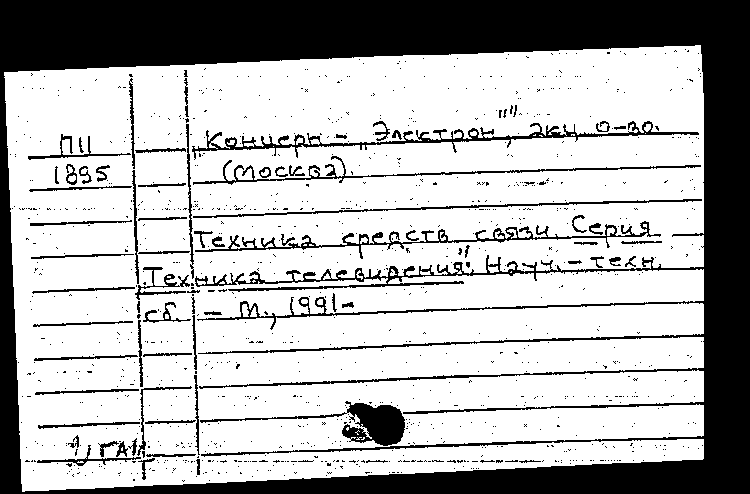 П11 „Концерн – „Электрон"", акц. о-во.
1895 (Москва).
Техника средств связи. Серия
„Техника телевидения": Науч. – техн.
сб. – М., 1991–